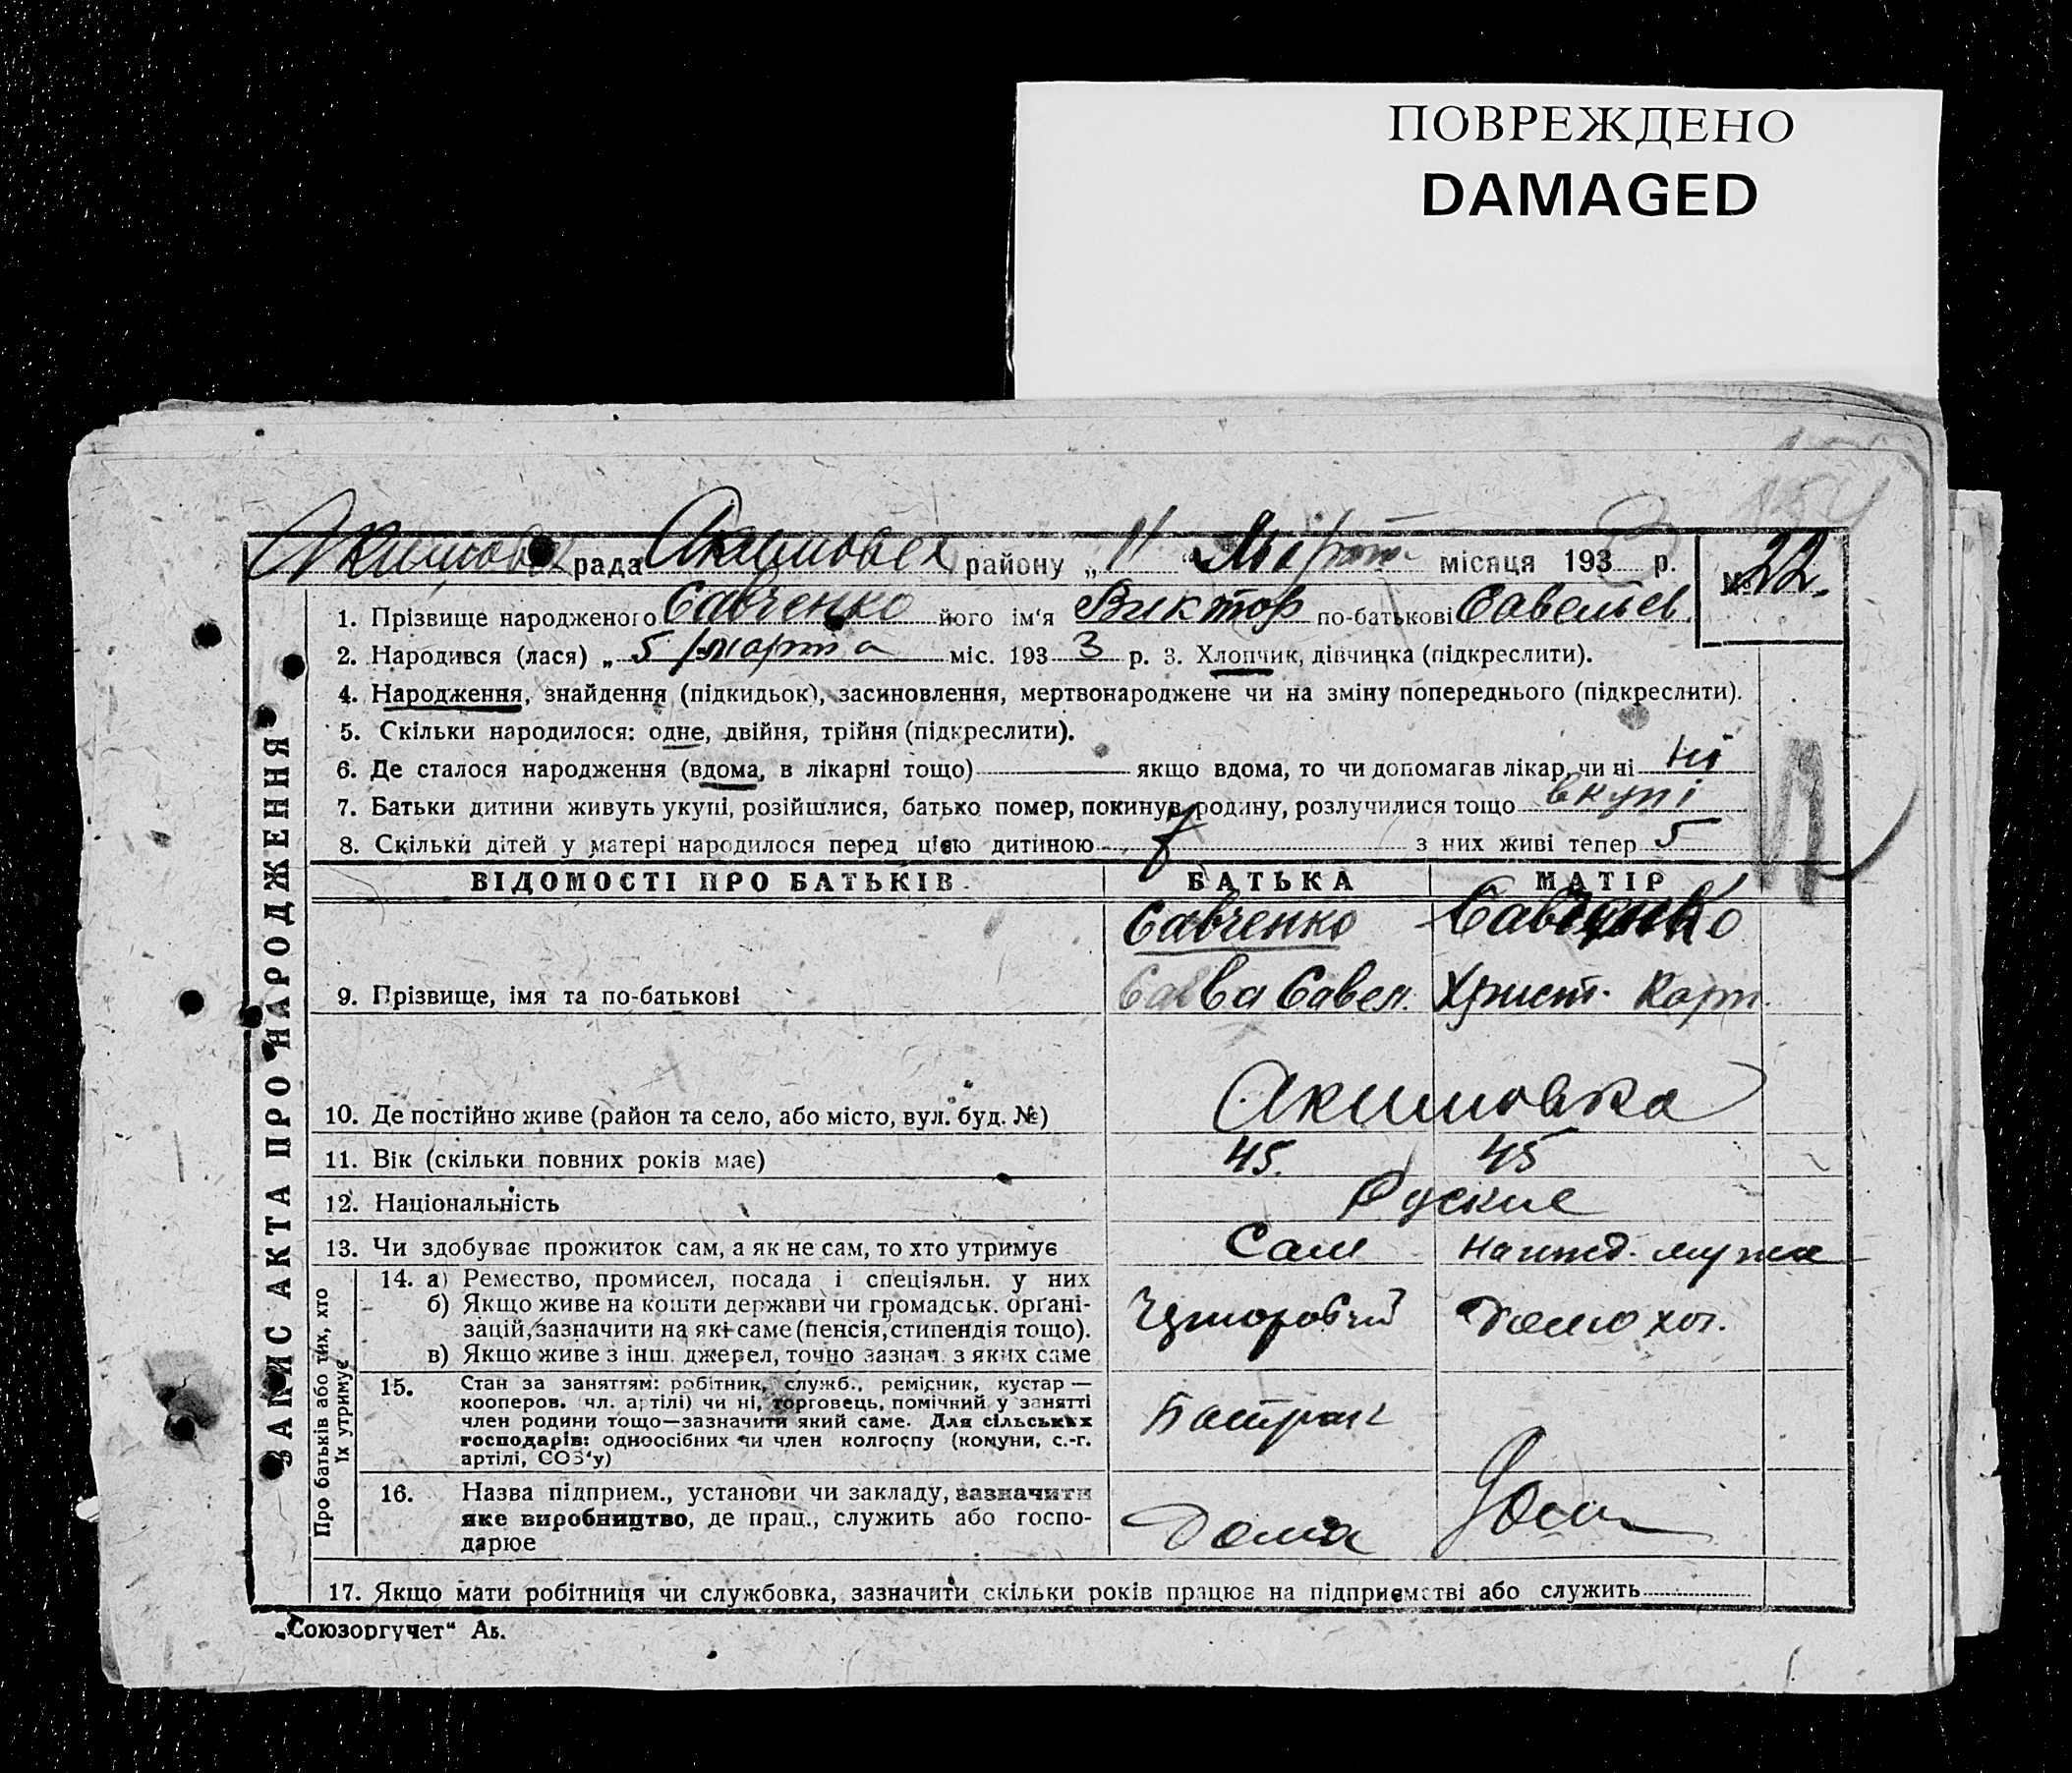 ПОВРЕЖДЕНО
DAMAGED
154
Акимовск рада Акимовск району „ 11 “ Март місяця 1933 р. № 22.
1. Прізвище народженого Савченко його ім‘я Виктор по-батькові Савельев.
2. Народився (лася) „ 5 марта міс. 193 3 р. 3. Хлопчик, дівчинка (підкреслити).
4. Народження, знайдення (підкидьок), засиновлення, мертвонароджене чи на зміну попереднього (підкреслити).
5. Скільки народилося: одне, двійня, трійня (підкреслити).
6. Де сталося народження (вдома, в лікарні тощо) якщо вдома, то чи допомагав лікар, чи ні ні
7. Батьки дитини живуть укупі, розійшлися, батько помер, покинув родину, розлучилися тощо вкупі
8. Скільки дітей у матері народилося перед цією дитиною з них живі тепер 5
ВІДОМОСТІ ПРО БАТЬКІВ. БАТЬКА МАТІР
Савченко Савченко
9. Прізвище, імя та по-батькові Савва Савел. Христ. Карп.
10. Де постійно живе (район та село, або місто, вул. буд. №) Акимовка
11. Вік (скільки повних років має) 45. 45
12. Національність Руские
13. Чи здобуває прожиток сам, а як не сам, то хто утримує Сам На ижд. мужа
14. а) Ремество, промисел, посада і спеціяльн. у них
б) Якщо живе на кошти держави чи громадськ. органі-
зацій, зазначити на які саме (пенсія, стипендія тощо).
в) Якщо живе з інш. джерел, точно зазнач. з яких саме
Домо хоз.
15. Стан за заняттям: робітник, служб., ремісник, кустар —
кооперов. (чл. артілі) чи ні, торговець, помічний у занятті
член родини тощо—зазначити який саме. Для сільських
господарів: одноосібних чи член колгоспу (комуни, с.-г.
артілі, СОЗ‘у)
Батрак
16. Назва підприєм., установи чи закладу, зазначити
яке виробництво, де прац., служить або госпо-
дарює
Дома Дом
17. Якщо мати робітниця чи службовка, зазначити скільки років працює на підприємстві або служить
„Союзоргучет“ Ав.
ЗАПИС АКТА ПРО НАРОДЖЕННЯ
Про батьків або тих, хто
їх утримує